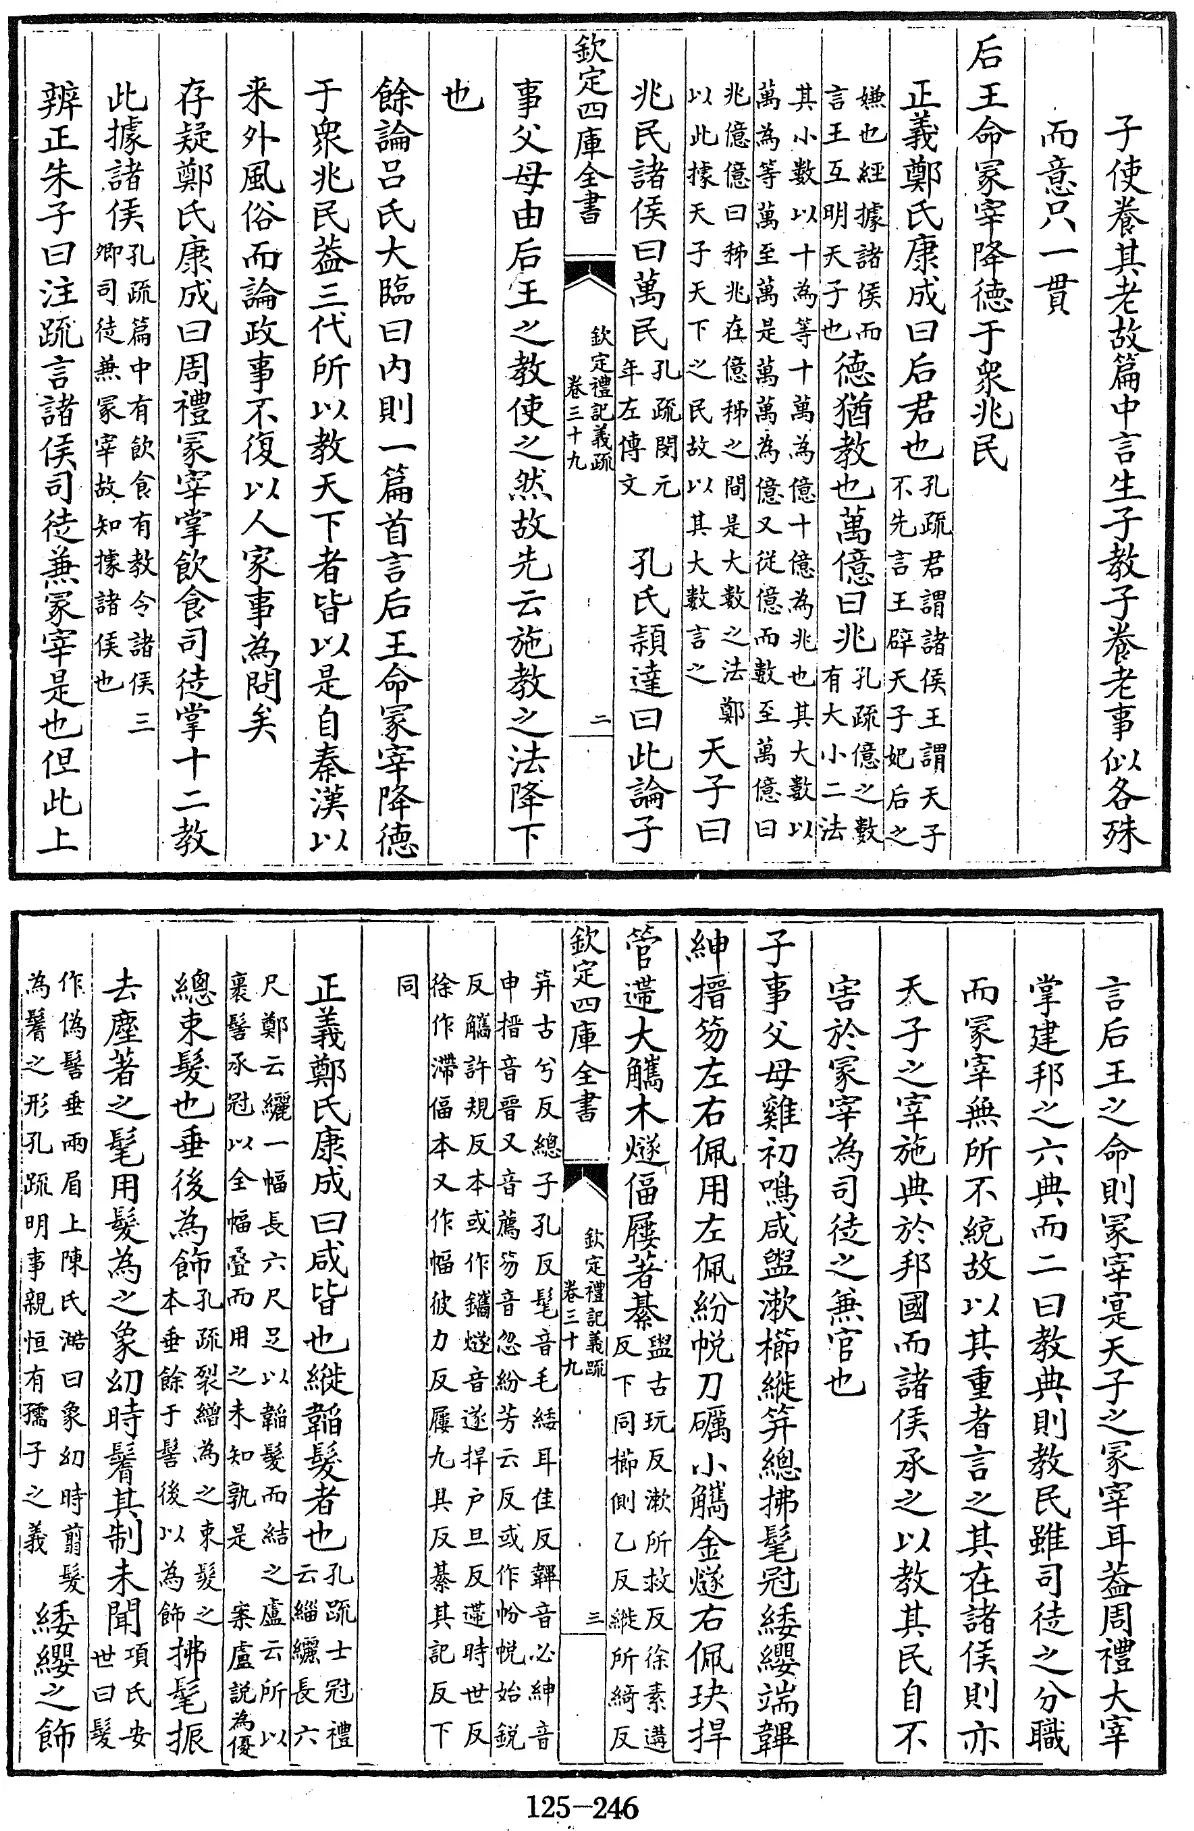 子使養其老故篇中言生子教子養老事似各殊
而意只一貫
后王命冢宰降德于衆兆民
正義鄭氏康成曰后君也孔疏君謂諸侯王謂天子
不先言王辟天子妃后之
嫌也經據諸侯而
言王互明天子也德猶教也萬億曰兆孔疏億之數
有大小二法
其小數以十為等十萬為億十億為兆也其大數以
萬為等萬至萬是萬萬為億又從億而數至萬億曰
兆億億曰秭兆在億秭之間是大數之法鄭
以此據天子天下之民故以其大數言之天子曰
兆民諸侯曰萬民孔疏閔元
年左傳文 孔氏穎達曰此論子
欽定四庫全書
欽定禮記義疏
卷三十九
二
事父母由后王之教使之然故先云施教之法降下
也
餘論吕氏大臨曰内則一篇首言后王命冢宰降德
于衆兆民葢三代所以教天下者皆以是自秦漢以
来外風俗而論政事不復以人家事為問矣
存疑鄭氏康成曰周禮冢宰掌飲食司徒掌十二教
此據諸侯孔疏篇中有飲食有教令諸侯三
卿司徒兼冢宰故知據諸侯也
辨正朱子曰注疏言諸侯司徒兼冢宰是也但此上
言后王之命則冢宰寔天子之冢宰耳葢周禮大宰
掌建邦之六典而二曰教典則教民雖司徒之分職
而冢宰無所不統故以其重者言之其在諸侯則亦
天子之宰施典於邦國而諸侯承之以教其民自不
害於冢宰為司徒之兼官也
子事父母雞初鳴咸盥漱櫛縰笄總拂髦冠緌纓端韠
紳搢笏左右佩用左佩紛帨刀礪小觿金燧右佩玦捍
管遰大觿木燧偪屨著綦盥古玩反漱所救反徐素遘
反下同櫛側乙反縰所綺反
欽定四庫全書
欽定禮記義疏
卷三十九
三
笄古兮反總子孔反髦音毛緌耳佳反韠音必紳音
申搢音晉又音薦笏音忽紛芳云反或作帉帨始鋭
反觿許規反本或作鑴燧音遂捍户旦反遰時世反
徐作滯偪本又作幅彼力反屨九具反綦其記反下
同
正義鄭氏康成曰咸皆也縰韜髮者也孔疏士冠禮
云緇纚長六
尺鄭云纚一幅長六尺足以韜髮而結之盧云所以
裹髻承冠以全幅疊而用之未知孰是 案盧說為優
總束髮也垂後為飾孔疏裂繒為之束髮之
本垂餘于髻後以為飾拂髦振
去塵著之髦用髮為之象幼時鬌其制未聞項氏安
世曰髮
作偽髻垂兩眉上陳氏澔曰象幼時翦髮
為鬌之形孔疏明事親恒有孺子之義緌纓之飾
125-246